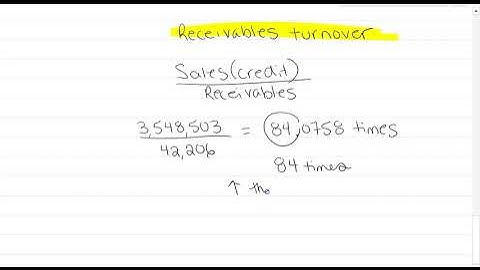 Receivables turnover
Sales(credit)
Receivables
3,548,503
42,206
= 84,0758 times
84 times
↑ the